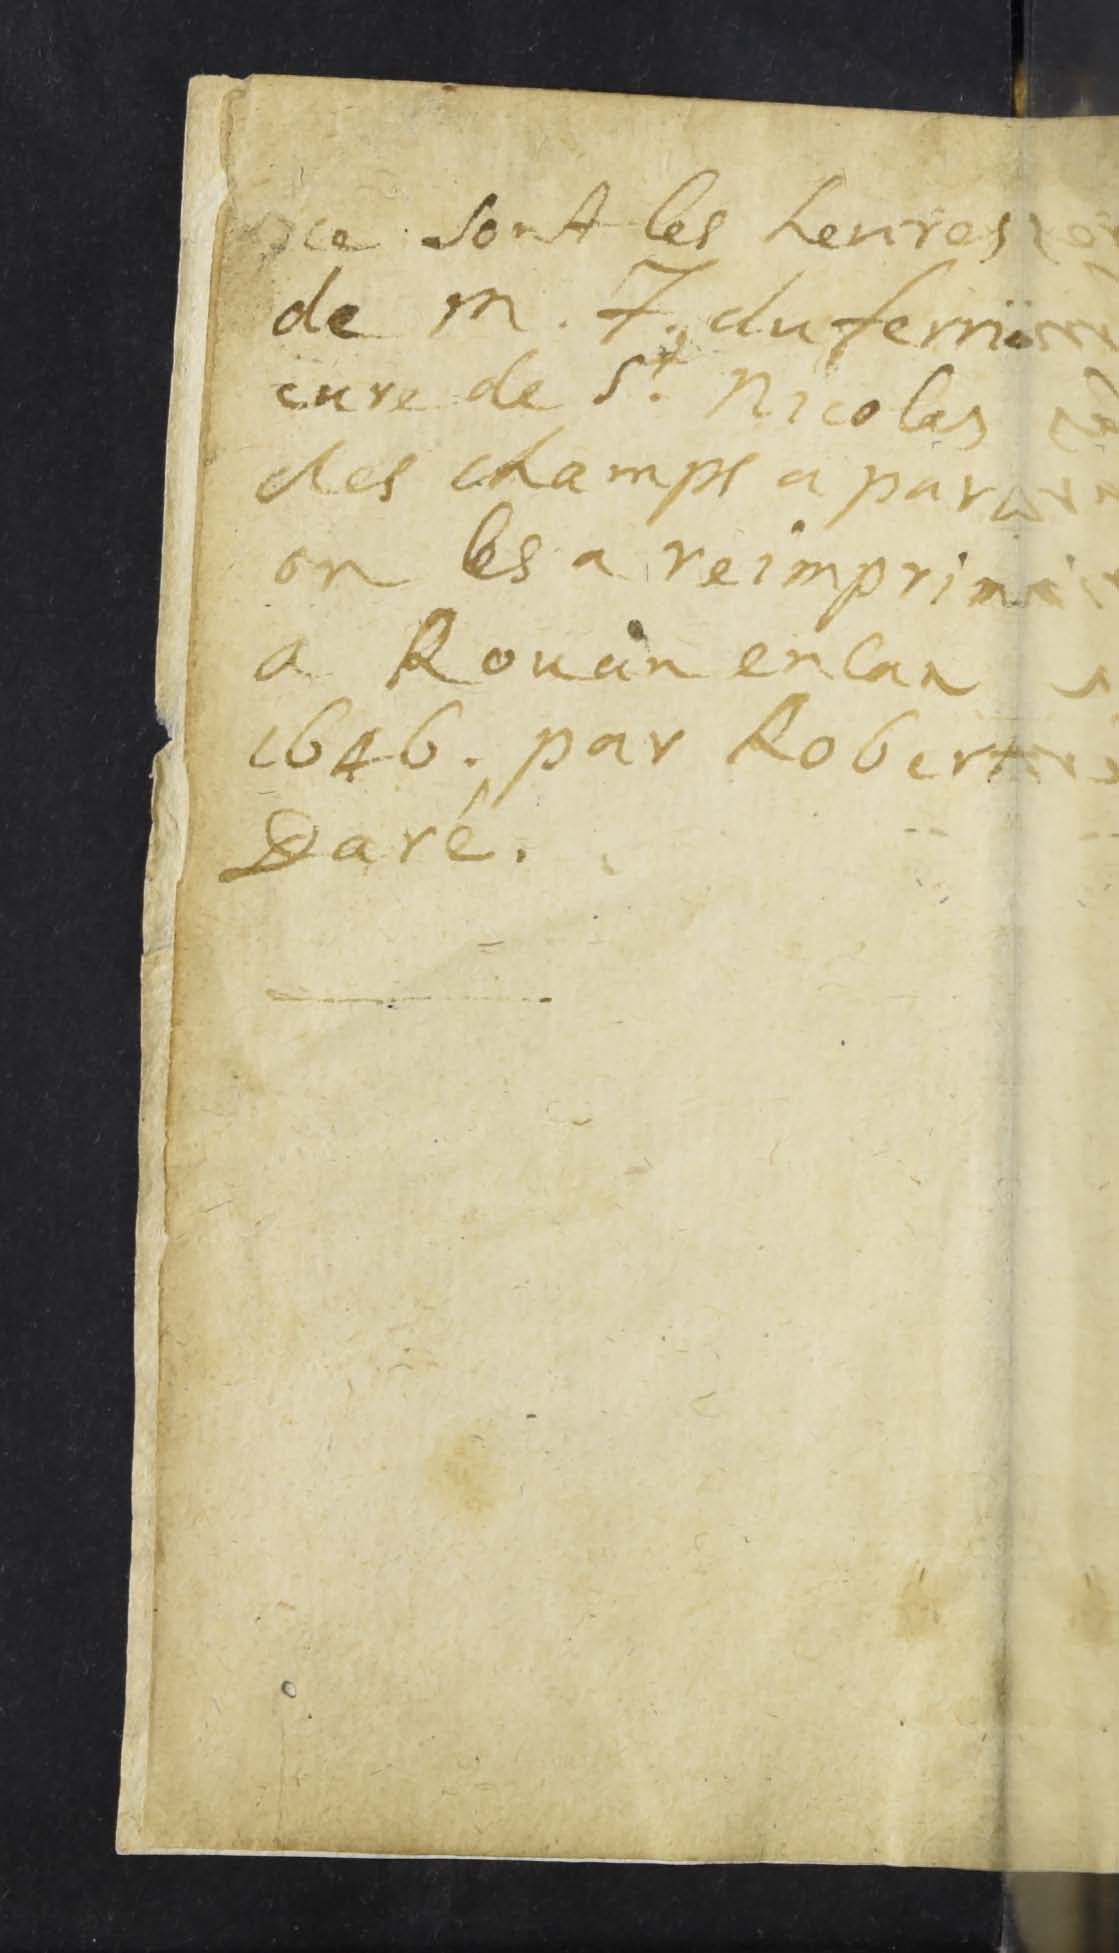 ce sont les heures
de m. J. du ferrïe
cure de St. Nicolas
des champs a par
on les a reimprimé
a Rouan en lan
1646. par Robert
Daré.